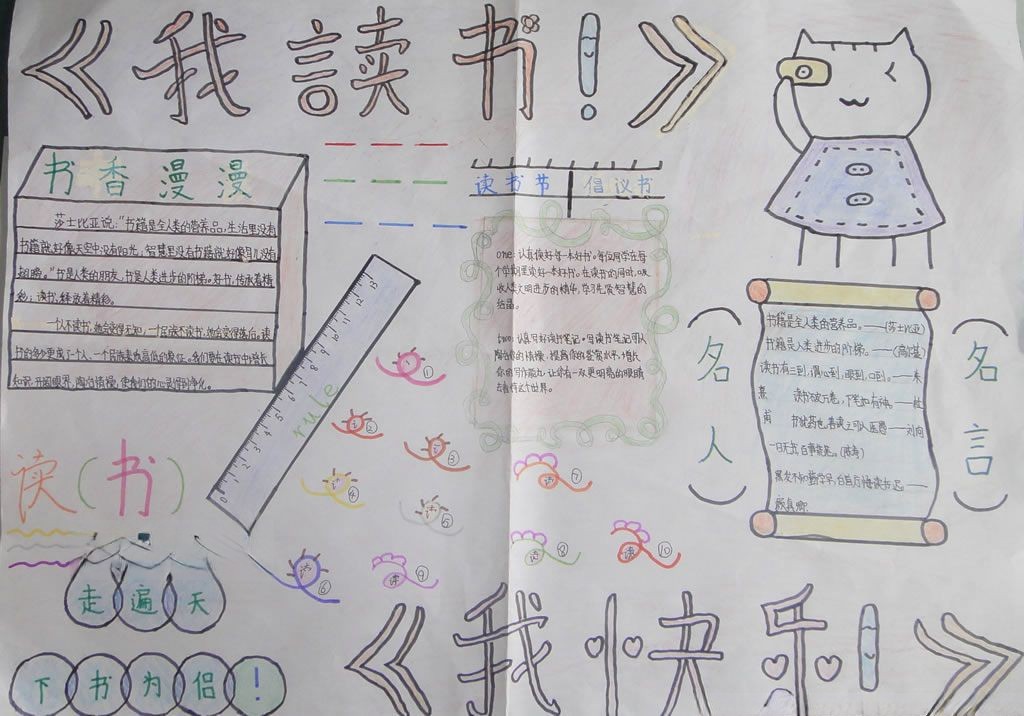 《我读书!》
书香漫漫
莎士比亚说:“书籍是全人类的营养品,生活里没有
书籍就好像天空中没有阳光,智慧里没有书籍就好像鸟儿没有
翅膀。”书是人类的朋友,书是人类进步的阶梯。好书,
读书,
一个人不读书,一个民族不读书,
一个民族
知识,开阔眼界,陶冶情操,使我们的心灵得到净化。
读书节 倡议书
one:认真读好每一本好书。每位同学在每
个学期里读好一本好书。在读书的同时,吸
收人类文明进步的精华,学习先贤智慧的
结晶。
two:认真写好读书笔记。写读书笔记可以
陶冶你的情操,提高你的鉴赏水平,增长
你的写作能力,让你有一双更明亮的眼睛
去看待这个世界。
(名人)
书籍是全人类的营养品。——(莎士比亚)
书籍是人类进步的阶梯。——(高尔基)
读书有三到,谓心到,眼到,口到。——朱
熹 读书破万卷,下笔如有神。——杜
甫 书犹药也,善读之可以医愚——刘向
一日无书,百事荒芜。(陈寿)
黑发不知勤学早,白首方悔读书迟。——
颜真卿
(名言)
0 1 2 3 4 5 6 7 8 9 10 11 12 13
rule
读(书)
走遍天
下书为侣!
①
②
③
④
⑤
读 ⑥
读 ⑦
读 ⑧
读 ⑨
读 ⑩
《我快乐!》